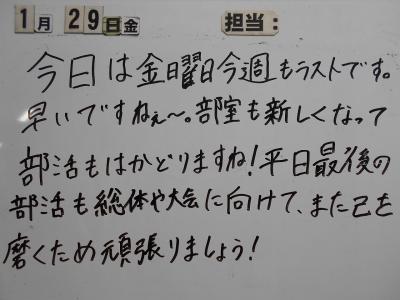 1月 29日金 担当:
今日は金曜日今週もラストです。
早いですねぇ〜。部室も新しくなって
部活もはかどりますね!平日最後の
部活も総体や大会に向けて、また己を
磨くため頑張りましょう!